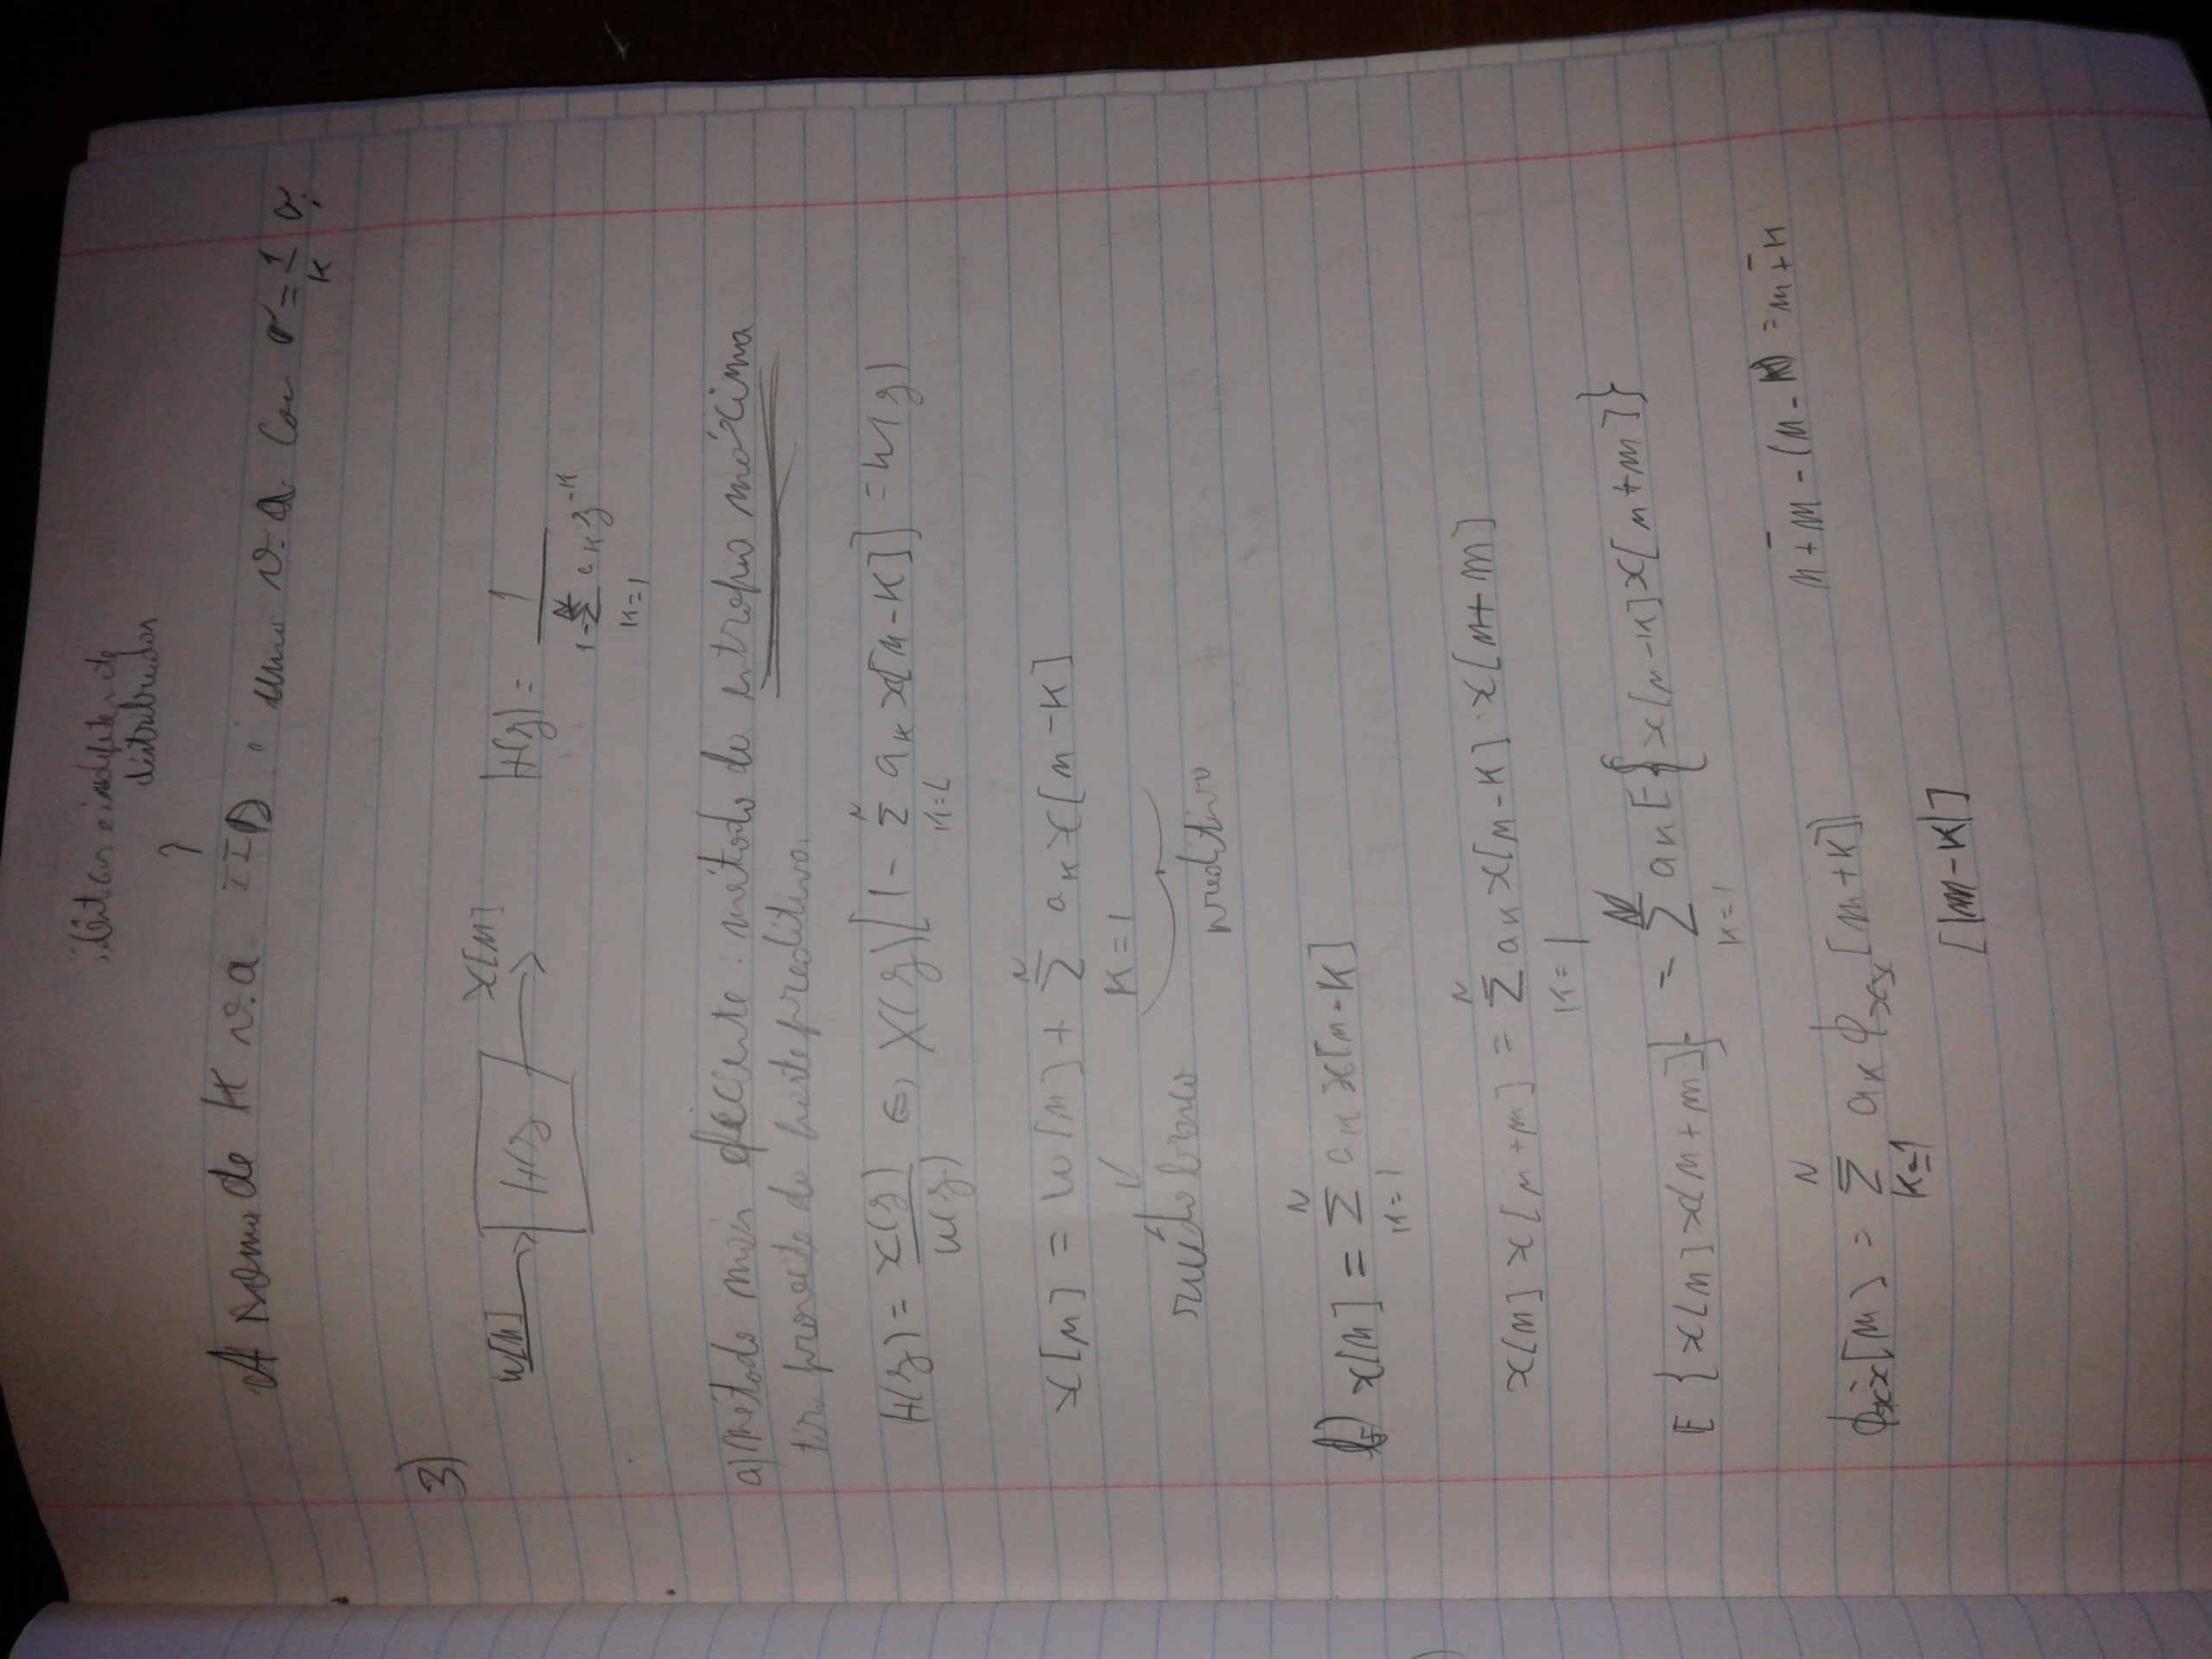 distribuidos
↑
A soma de K v.a IID é uma v.a. com σ = 1/K σi
3)
w[n] → H(z) → x[n]    H(z) = 1 / (1 - Σ_{k=1}^{N} a_k z^{-k})
a) método mais eficiente: método de entropia máxima
tira proveito da parte preditiva.
H(z) = X(z)/W(z) ⇔ X(z)[1 - Σ_{k=1}^{N} a_k x[n-k]] = W(z)
x[n] = w[n] + Σ_{k=1}^{N} a_k x[n-k]
ruído branco    preditivo
b) x[n] = Σ_{k=1}^{N} a_k x[n-k]
x[n] x[n+m] = Σ_{k=1}^{N} a_k x[n-k] · x[n+m]
E{x[n] x[n+m]} = Σ_{k=1}^{N} a_k E{x[n-k] x[n+m]}
n∓m-(n-k) = m∓k
ϕxx[m] = Σ_{k=1}^{N} a_k ϕxx[m+k]
[|m-k|]